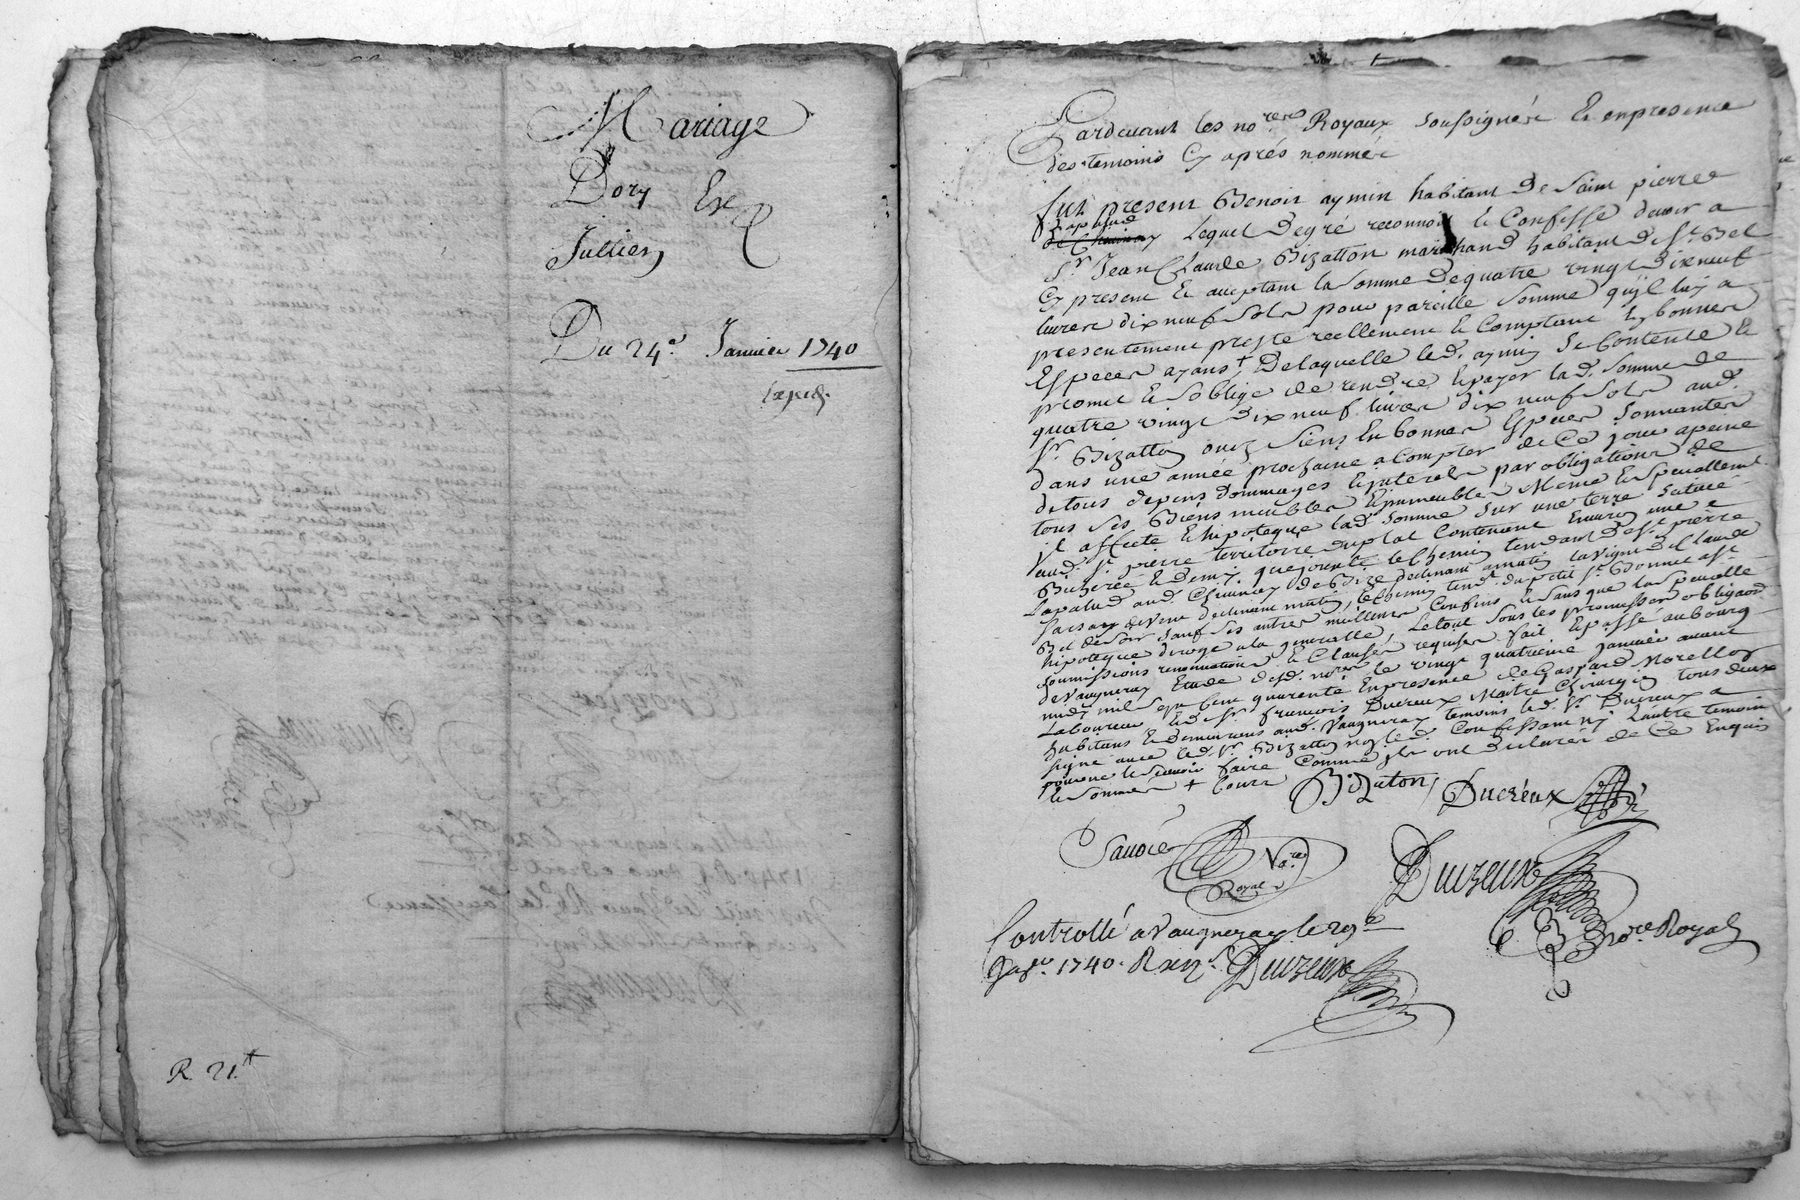 Mariage
Dory Et
Jullien
Du 24e Janvier 1740
Expédé
R. 21tt
Pardevant les nores Royaux soussignés Et enpresence
des temoins Cy aprés nommés
fut present Benoit aymin habitant de saint pierre
Lapalud
Lequel degré reconnois Et Confesse devoir a
Sr Jean Claude Bizatton marchand habitant de St. Bel
Cy present Et aceptant la somme de quatre vingt dixneuf
livres dix neuf sols pour pareille somme qu'jl luy a
presentement presté reellement Et Comptant En bonnes
Especes ayans + De laquelle led. aymin se Contente Et
promet Et soblige de rendre Et payer lad. somme de
quatre vingt dix neuf livres dix neuf sols aud.
Sr Bizatton ou ez siens En bonnes Especes sonnantes
dans une année prochaine a Compter de Ce jour apeine
de tous depens dommages Et jnterets par obligations de
tous ses Biens meubles Et jmmeubles Meme Et specialement
jl affecte Et hipoteque lad. somme sur une terre scituée
aud. St. pierre territoire du plat Contenant Environ une
Bicherée Et demy. que jouxte le Chemin tendant de St. pierre
Lapalud aud. Chevinay de Bize declinant amatin la vigne de Claude
de vent declinant matin, le Chemin tendt. du petit St. Bonnet a St
Bel de soir sauf ses autres meilleurs Confins Et sans que la specialle
hipoteque deroge a la generalle, Le tout sous les promesses obligaons
soumissions renonciations Et Clauses requises fait Et passé au bourg
de Vaugneray Etude desd. nores le vingt quatrieme janvier avant
midy mil sept Cens quarente En presence de Gaspard Morellon
Laboureur Et de Sr. francois Ducreux Maitre Chirurgien tous deux
habitans Et demeurans aud. Vaugneray temoins led. Sr. Ducreux a
signé avec led. Sr. Bizatton non led. Confessant ny l'autre temoin
pour ne le scavoir faire Comme jls ont declarés de Ce Enquis
Et sommés + Cours
Bizaton Ducreux
Savoie Nore Royal
Ducreux
Nore Royal
Controllé a Vaugneray le 29e
Janer. 1740. R Ducreux